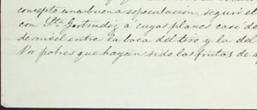 concepto una buena reputacion, seguir el
con Dña. Gertrudis, a cuyos planes casi de
entre la boca del tiro y la del
No pobres que hayan sido los frutos de a